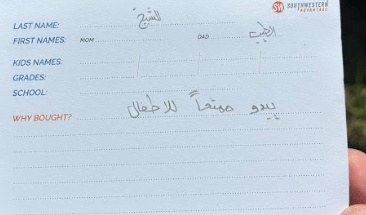 SW SOUTHWESTERN ADVANTAGE
LAST NAME: الشيخ
FIRST NAMES: MOM DAD الطيب
KIDS NAMES:
GRADES:
SCHOOL:
WHY BOUGHT? يبدو ممتعاً للاطفال